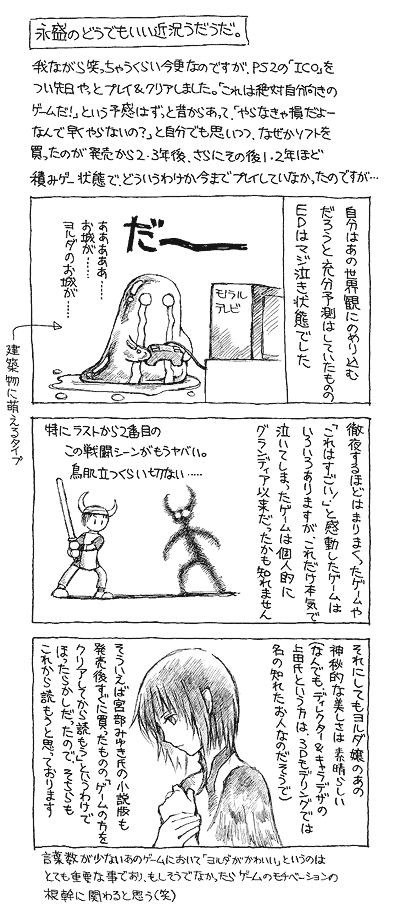 永盛のどうでもいい近況うだうだ。
我ながら笑っちゃうくらい今更なのですが、PS2の「ICO」を
つい先日やっとプレイ&クリアしました。「これは絶対自分向きの
ゲームだ!」という予感はずっと昔からあって、「やらなきゃ損だよー
なんで早くやらないの?」と自分でも思いつつ、なぜかソフトを
買ったのが発売から2・3年後、さらにその後1・2年ほど
積みゲー状態で、どういうわけか今までプレイしていなかったのですが…
自分はあの世界観にのめり込む
だろうと充分予測はしていたものの
EDはマジ泣き状態でした
だーーー
ああああ…
お城が……
お城が……
ヨルダのお城が……
モノラル
テレビ
建築物に萌えるタイプ
徹夜するほどはまりまくったゲームや
「これはすごい!」と感動したゲームは
いろいろありますが、これだけ本気で
泣いてしまったゲームは個人的に
グランディア以来だったかも知れません
特にラストから2番目の
この戦闘シーンがもうヤバい。
鳥肌立つくらい切ない……
それにしてもヨルダ嬢のあの
神秘的な美しさは素晴らしい
(なんでも、ディレクター&キャラデザの
上田氏という方は、3Dモデリングでは
名の知れたお人なのだそうで)
そういえば宮部みゆき氏の小説版も
発売後すぐに買ったものの、「ゲームの方を
クリアしてから読もう」というわけで
ほったらかしだったので、そちらも
これから読もうと思っております
言葉数が少ないあのゲームにおいて「ヨルダがかわいい」というのは
とても重要な事であり、もしそうでなかったらゲームのモチベーションの
根幹に関わると思う(笑)